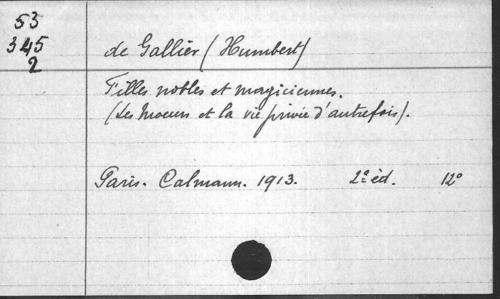 53
345
2
de Gallier (Humbert)
Filles nobles et magiciennes.
(Les Moeurs et la vie privée d'autrefois).
Paris. Calmann. 1913. 2e éd. 12°